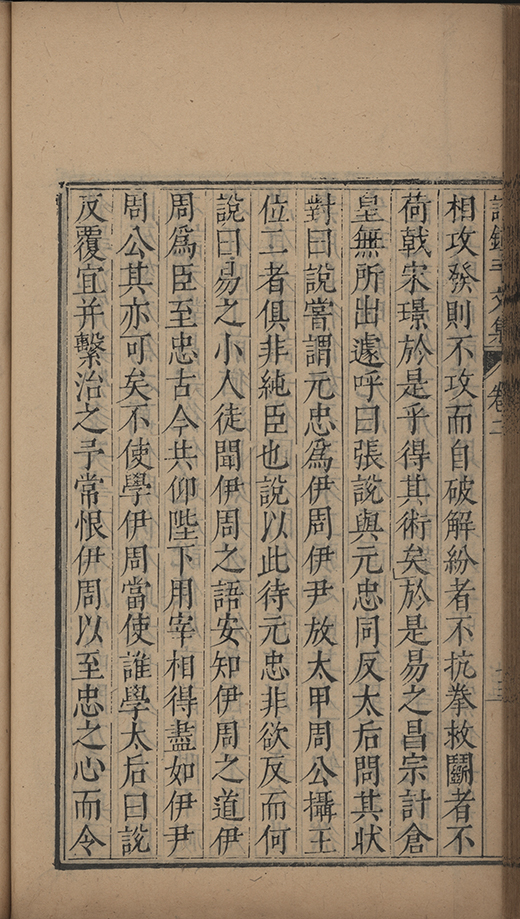 文集 卷二
相攻發則不攻而自破解紛者不抗拳救鬭者不
荷戟宋璟於是乎得其術矣於是易之昌宗計倉
皇無所出遽呼曰張說與元忠同反太后問其狀
對曰說嘗謂元忠爲伊周伊尹放太甲周公攝王
位二者俱非純臣也說以此待元忠非欲反而何
說曰易之小人徒聞伊周之語安知伊周之道伊
周爲臣至忠古今共仰陛下用宰相得盡如伊尹
周公其亦可矣不使學伊周當使誰學太后曰說
反覆宜并繫治之予常恨伊周以至忠之心而令